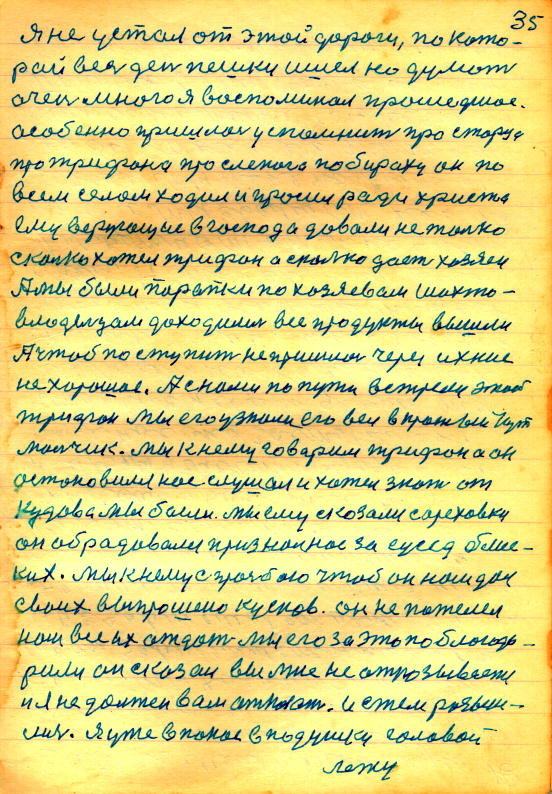 35
Я не устал от этой дороги, по кото-
рай вен ден пешки шиел но думат
очен много я воспоминал прошедшое.
особенно пришлон успомнит про старца
про трифона про слепога побираху он по
всем селом ходил и просил ради христа
ему верующие в господа довали не толко
сколко хотел трифон а сколко дает хозяен
А мы были тарапки по хозяевам шахто-
владелцам доходили все продукты вышли
А чтоб поступит не пришлон через ихние
не хорошое. А с нами по пути встрели этой
трифон мы его узнали его вел впротвый пут
малчик. мы к нему говарим трифон а он
остоновилсе слушал и хотел знат от
кудова мы были. мы ему сказали сореховки
он обрадовали признон нас за сусед блис-
ких. мы к нему с прозбою чтоб он нам дал
своих выпрошено кусков. он не пожелел
нам все их отдат мы его за это поблагода-
рили он сказал вы мне не отрозываете
и я не должен вам отказат. и стем розыш-
лис. я уже впокое вподушки головой
лежу